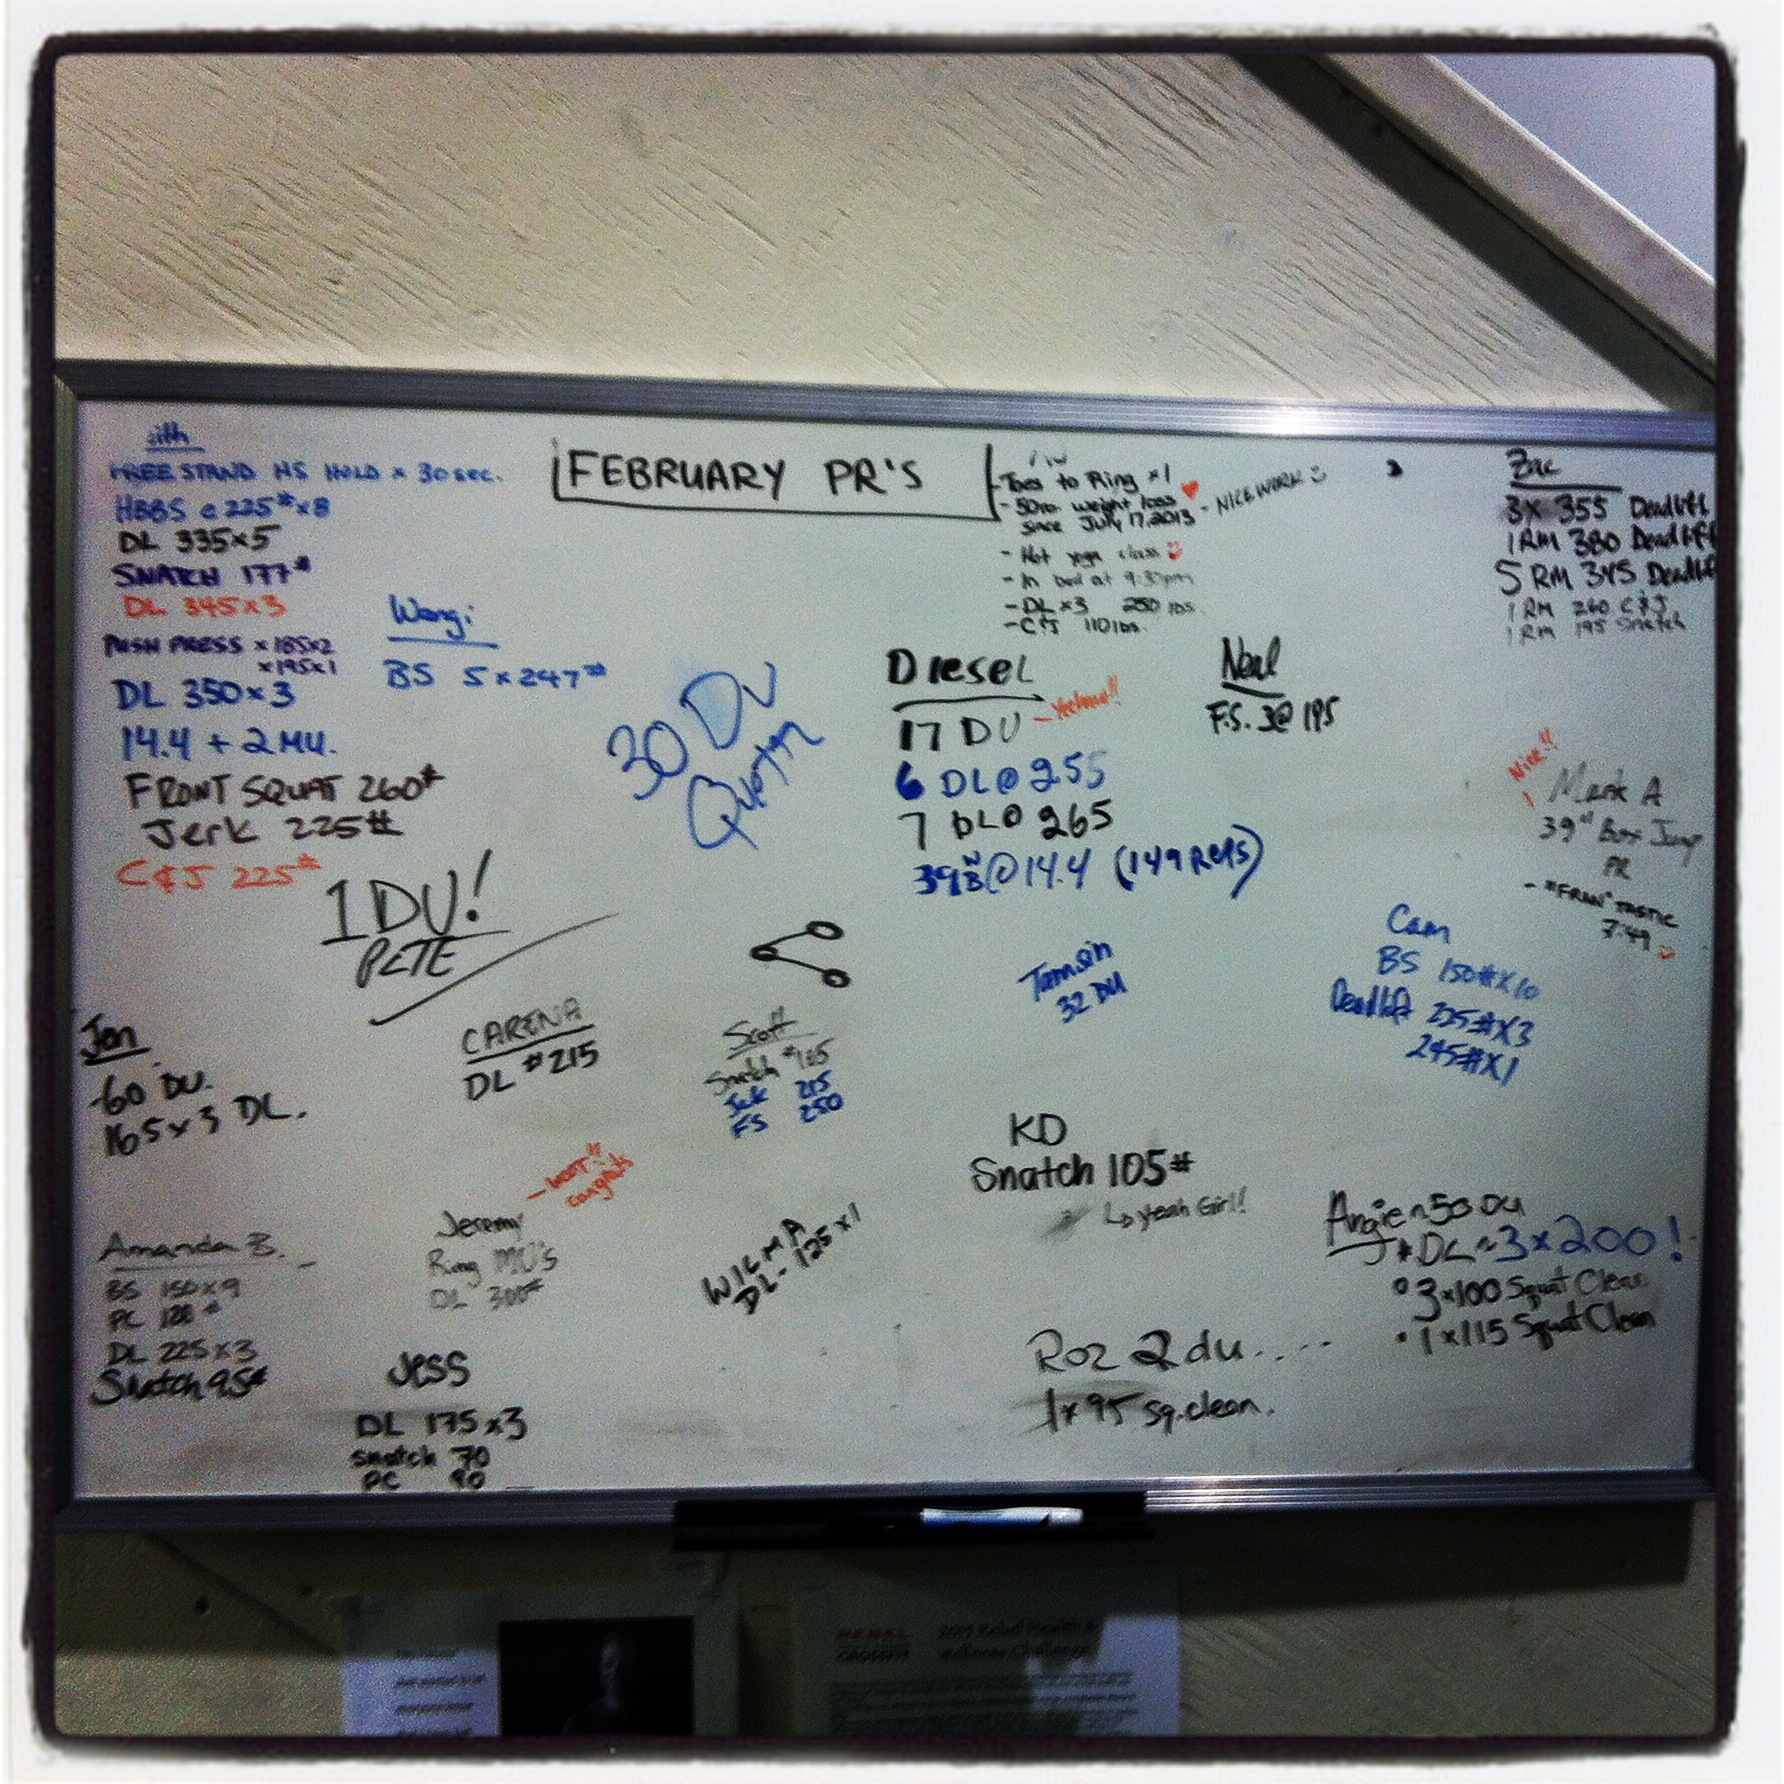 FEBRUARY PR'S
FREE STAND HS HOLD x 30 sec.
HBBS @ 225# x 8
DL 335x5
SNATCH 177#
DL 345x3
PUSH PRESS x 185x2
x 195x1
DL 350x3
14.4 + 2 MU.
FRONT SQUAT 260#
Jerk 225#
C&J 225#
BS 5x247#
30 DU
Toes to Ring x1
- 50 weight loss
since July 17, 2013 - NICE WORK
- Hot yoga class
- In bed at 9:30pm
- DL x3 250 lbs.
- C&J 110 lbs.
Zac
3x 355 Deadlift
1 RM 380 Deadlift
5 RM 345 Deadlift
1 RM 260 C&J
1 RM 195 Snatch
Diesel
17 DU
6 DL@ 255
7 DL@ 265
@14.4 (149 Reps)
Neal
F.S. 3@ 195
Nice!!
Mark A
39" Box Jump
PR
- "FRAN"TASTIC
7:49
1 DU!
PETE
Tamsin
32 DU
Cam
BS 150#x10
Deadlift 225#x3
245#x1
Jen
60 DU.
165x3 DL.
CARENA
DL #215
Scott
Snatch
Jerk 215
FS 250
KD
Snatch 105#
↳ Yeah Girl!
Amanda B.
BS 150x9
PC 120#
DL 225x3
Snatch 95#
Jeremy
Ring MU's
DL 300#
WILMA
DL - 125x1
Angie 50 DU
DL 3x200!
3x100 Squat Clean
1x115 Squat Clean
Jess
DL 175x3
snatch 70
PC 90
Roz 2 du.....
1x95 sq. clean.
REBEL
CROSSFIT